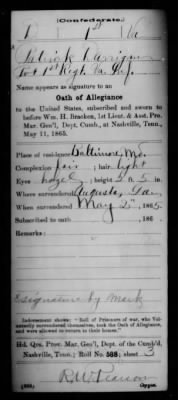 (Confederate.)
D 1st Va
Patrick
Co. 1st Regt. Va. Inf.
Name appears as signature to an
Oath of Allegiance
to the United States, subscribed and sworn to
before Wm. H. Bracken, 1st Lieut. & Asst. Pro.
Mar. Gen'l, Dept. Cumb., at Nashville, Tenn.,
May 11, 1865.
Place of residence Baltimore, Md.
Complexion fair; hair light
Eyes hazel; height 5 ft. 5 in.
Where surrendered Augusta, Ga.
When surrendered May 2", 1865
Subscribed to oath , 186 .
Remarks:
signature by mark
Indorsement shows: "Roll of Prisoners of war, who Vol-
untarily surrendered themselves, took the Oath of Allegiance,
and were allowed to return to their homes."
Hd. Qrs. Pro. Mar. Gen'l, Dept. of the Cumb'd,
Nashville, Tenn.; Roll No. 588; sheet 3
R. W. Pearson
Copyist.